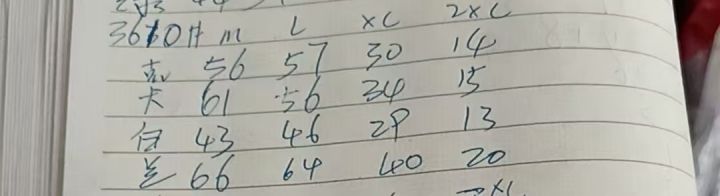 3610件 M L XL 2XL
56 57 30 14
卡 61 56 34 15
白 43 46 29 13
兰 66 64 40 20
XL